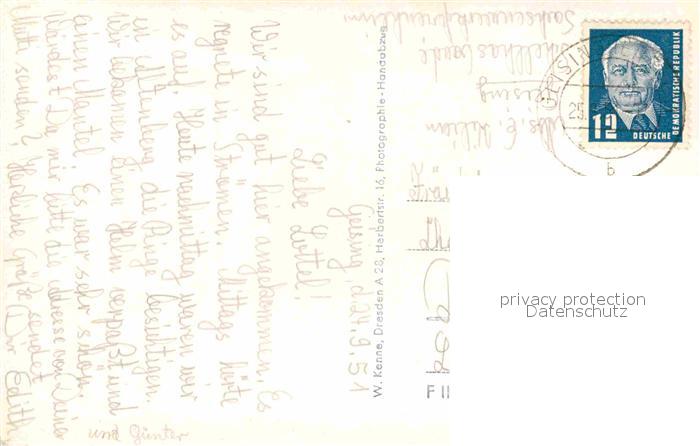 Geising, d. 24.9.51
Liebe Lottel!
Wir sind gut hier angekommen. Es
regnete in Strömen. Mittags hörte
es auf. Heute nachmittag waren wir
in Altenberg die Pinge besichtigen.
Wir bekamen einen Helm verpaßt und
einen Mantel. Es war sehr schön.
Würdest Du mir bitte die Adresse von Deiner
Mutti senden? Herzliche Grüße sendet
Dir Edith
und Günter
W. Kenne, Dresden A 28, Herbertstr. 16, Photographie - Handabzug
F II
Geising
GEISIN
25.
b
12
DEUTSCHE
DEMOKRATISCHE REPUBLIK
privacy protection
Datenschutz